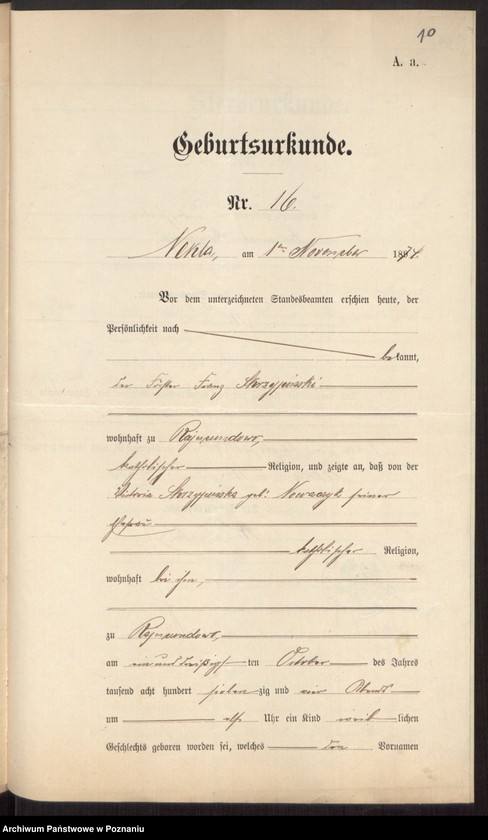 10
A. a.
Geburtsurkunde.
Nr. 16.
Nekla, am 1ten November 1874.
Vor dem unterzeichneten Standesbeamten erschien heute, der
Persönlichkeit nach
bekannt,
der Förster Franz Skrzypinski
wohnhaft zu Rajmundowo,
katholischer Religion, und zeigte an, daß von der
Viktoria Skrzypinska geb. Nowaczyk seiner
Ehefrau
katholischer Religion,
wohnhaft bei ihm,
zu Rajmundowo,
am einunddreißigsten October des Jahres
tausend acht hundert siebenzig und vier Abends
um elf Uhr ein Kind weiblichen
Geschlechts geboren worden sei, welches den Vornamen
Archiwum Państwowe w Poznaniu